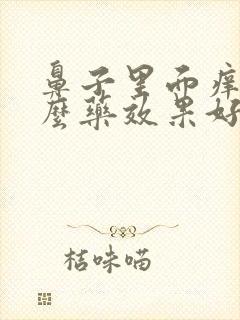 鼻子里面痒
麼藥效果好
桔咪喵